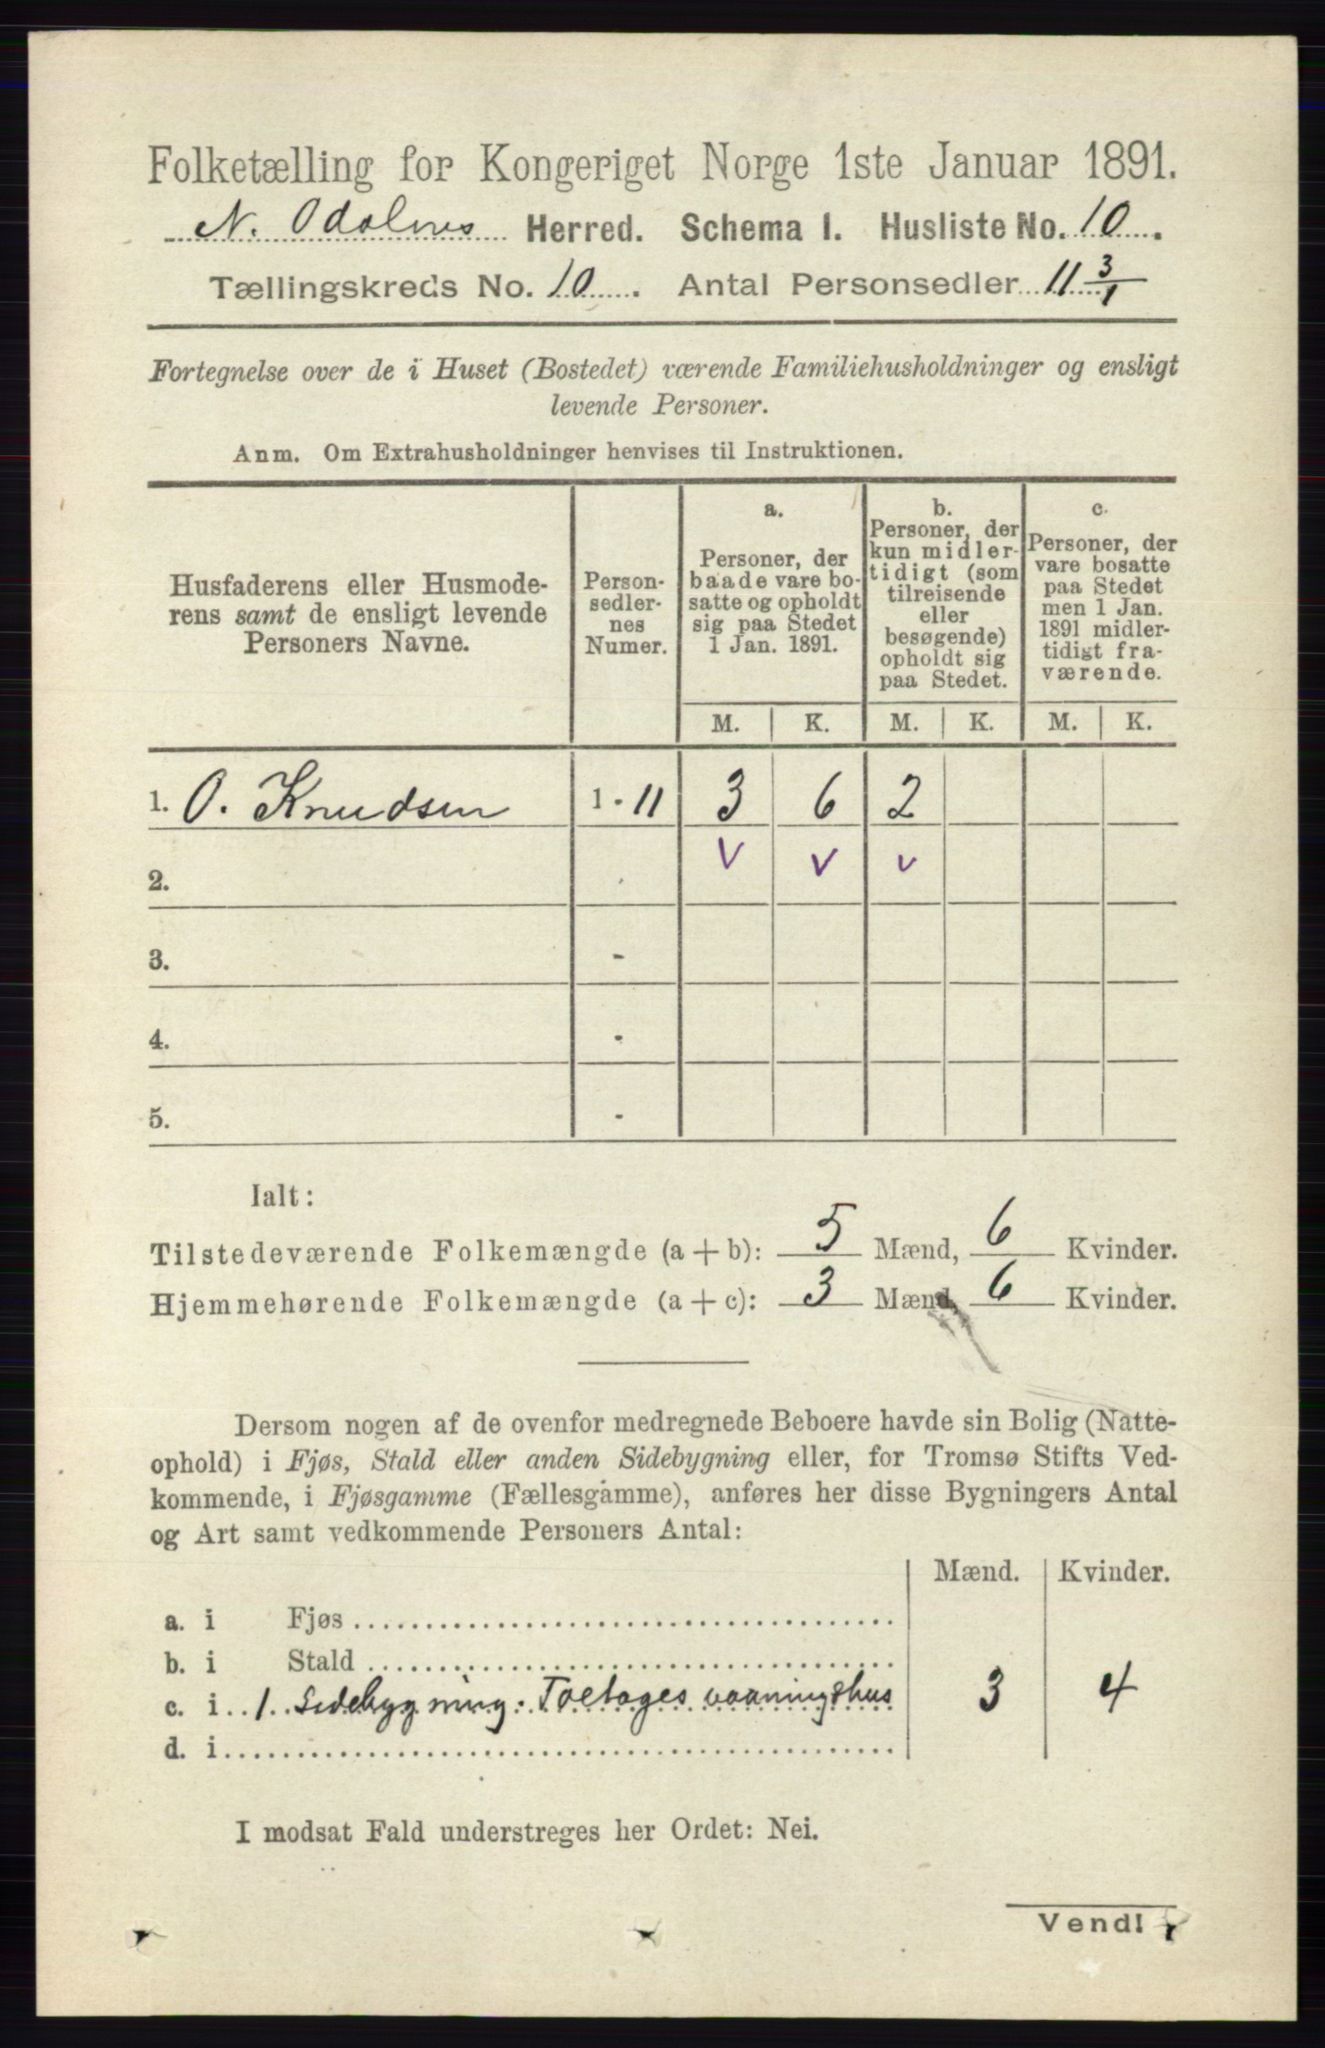 Folketælling for Kongeriget Norge 1ste Januar 1891.
N. Odalnes Herred. Schema I. Husliste No. 10.
Tællingskreds No. 10. Antal Personsedler 11 3/1
Fortegnelse over de i Huset (Bostedet) værende Familiehusholdninger og ensligt
levende Personer.
Anm. Om Extrahusholdninger henvises til Instruktionen.
Husfaderens eller Husmode-
rens samt de ensligt levende
Personers Navne.
Person-
sedler-
nes
Numer.
a.
Personer, der
baade vare bo-
satte og opholdt
sig paa Stedet
1 Jan. 1891.
b.
Personer, der
kun midler-
tidigt (som
tilreisende
eller
besøgende)
opholdt sig
paa Stedet.
c.
Personer, der
vare bosatte
paa Stedet
men 1 Jan.
1891 midler-
tidigt fra-
værende.
M. K. M. K. M. K.
1. O. Knudsen 1 - 11 3 6 2
v v v
2.
3. -
4. -
5. -
Ialt:
Tilstedeværende Folkemængde (a + b): 5 Mænd, 6 Kvinder.
Hjemmehørende Folkemængde (a + c): 3 Mænd, 6 Kvinder.
Dersom nogen af de ovenfor medregnede Beboere havde sin Bolig (Natte-
ophold) i Fjøs, Stald eller anden Sidebygning eller, for Tromsø Stifts Ved-
kommende, i Fjøsgamme (Fællesgamme), anføres her disse Bygningers Antal
og Art samt vedkommende Personers Antal:
Mænd. Kvinder.
a. i Fjøs
b. i Stald
c. i 1 Sidebygning. Toetages vaaningshus 3 4
d. i
I modsat Fald understreges her Ordet: Nei.
Vend!